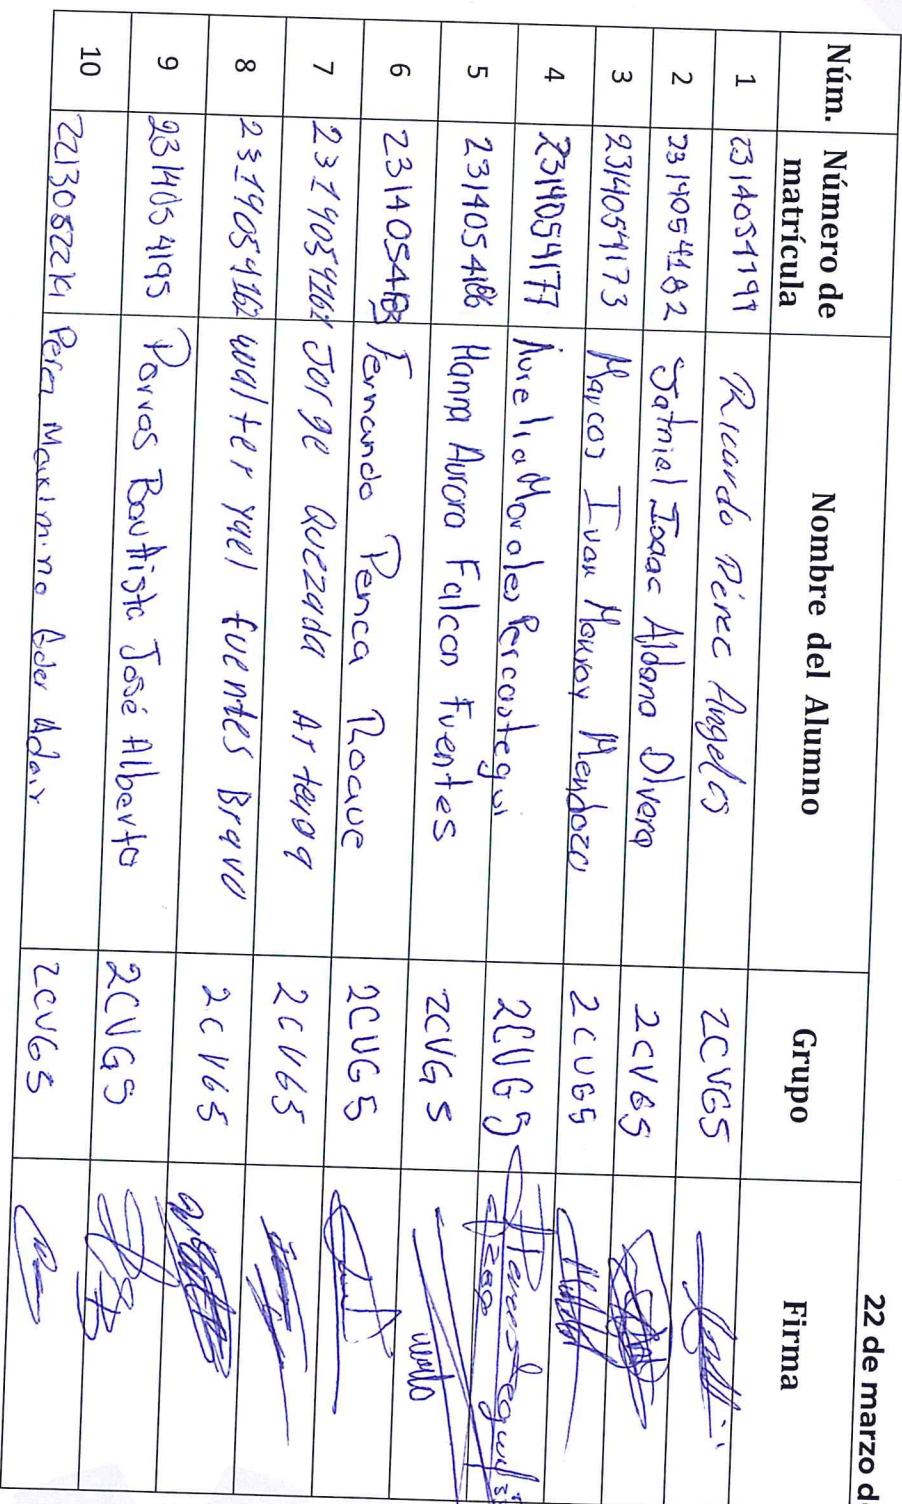 22 de marzo d
Núm. Número de matrícula Nombre del Alumno Grupo Firma
1 2314054191 Ricardo Pérez Angeles 2CVG5
2 2314054182 Satniel Isaac Aldana Olvera 2CVG5
3 2314054173 Marcos Ivan Monroy Mendoza 2CVG5
4 2314054177 Aurelia Morales Percastegui 2CVG5
5 2314054186 Hanna Aurora Falcon Fuentes 2CVG5
6 2314054183 Fernando Penca Roque 2CUG5
7 231405416 Jorge Quezada Arteaga 2CVG5
8 2314054162 Walter Yael fuentes Bravo 2CVG5
9 2314054195 Porras Bautista José Alberto 2CVG5
10 Perez Maximino Eder Adair 2CVG5